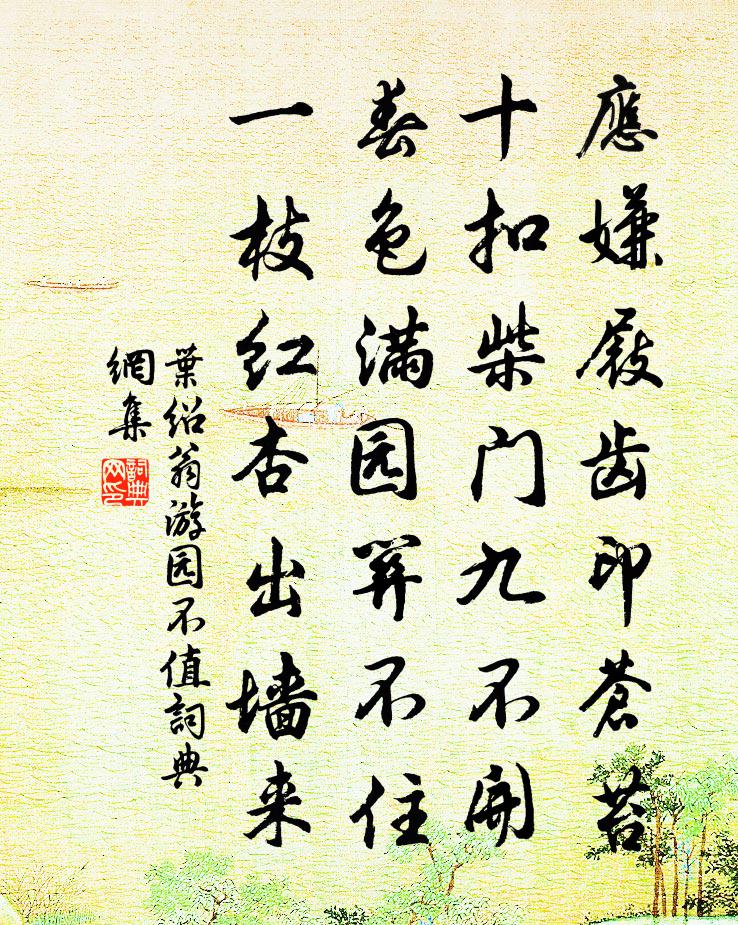 應嫌屐齿印蒼苔
十扣柴门九不開
春色满园関不住
一枝红杏出墙来
葉绍翁游园不值詞典
網集
詞典网印